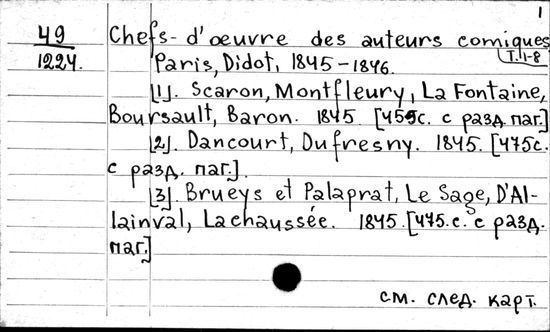 1
49 Chefs-d'œuvre des auteurs comiques
T. 1-8
1224. Paris, Didot, 1845-1846.
[1]. Scaron, Montfleury, La Fontaine,
Boursault, Baron. 1845 [455с. с разд. паг.]
[2]. Dancourt, Dufresny. 1845. [475с.
с разд. паг.].
[3]. Brueys et Palaprat, Le Sage, D'Al-
lainval, Lachaussée. 1845. [475.с. с разд.
паг.]
см. след. карт.